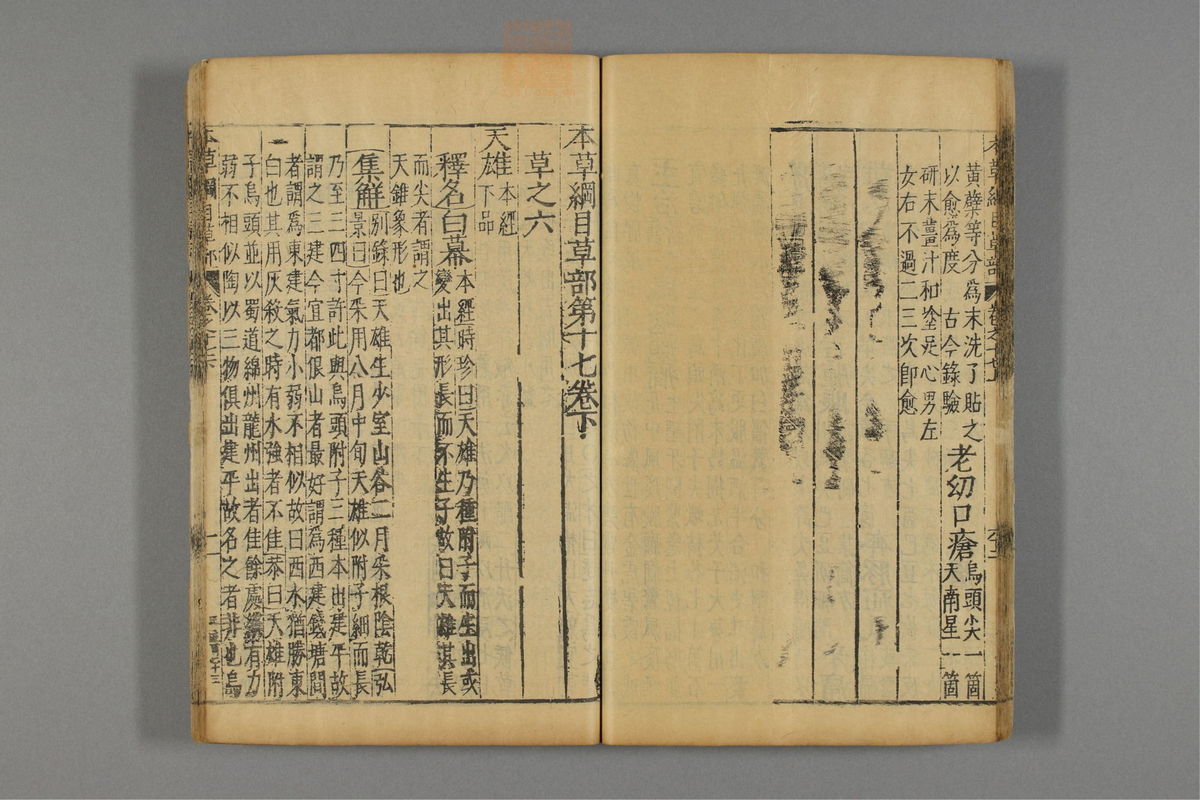 黃蘗等分為末洗了貼之
以愈為度　古今錄驗
老幼口瘡
烏頭尖一箇
天南星一箇
研末薑汁和塗足心男左
女右不過二三次卽愈
本草綱目草部第十七卷下
草之六
天雄
本經
下品
釋名
白幕
本經時珍曰天雄乃種附子而生出或
變出其形長而不生子故曰天雄其長
而尖者謂之
天錐象形也
集解
別錄曰天雄生少室山谷二月采根陰乾弘
景曰今采用八月中旬天雄似附子細而長
乃至三四寸許此與烏頭附子三種本出建平故
謂之三建今宜都佷山者最好謂為西建錢塘間
者謂爲東建氣力小弱不相似故曰西水猶勝東
白也其用灰殺之時有水強者不佳恭曰天雄附
子烏頭並以蜀道綿州龍州出者佳餘處縱有力
弱不相似陶以三物俱出建平故名之者非也烏
本草綱目草部